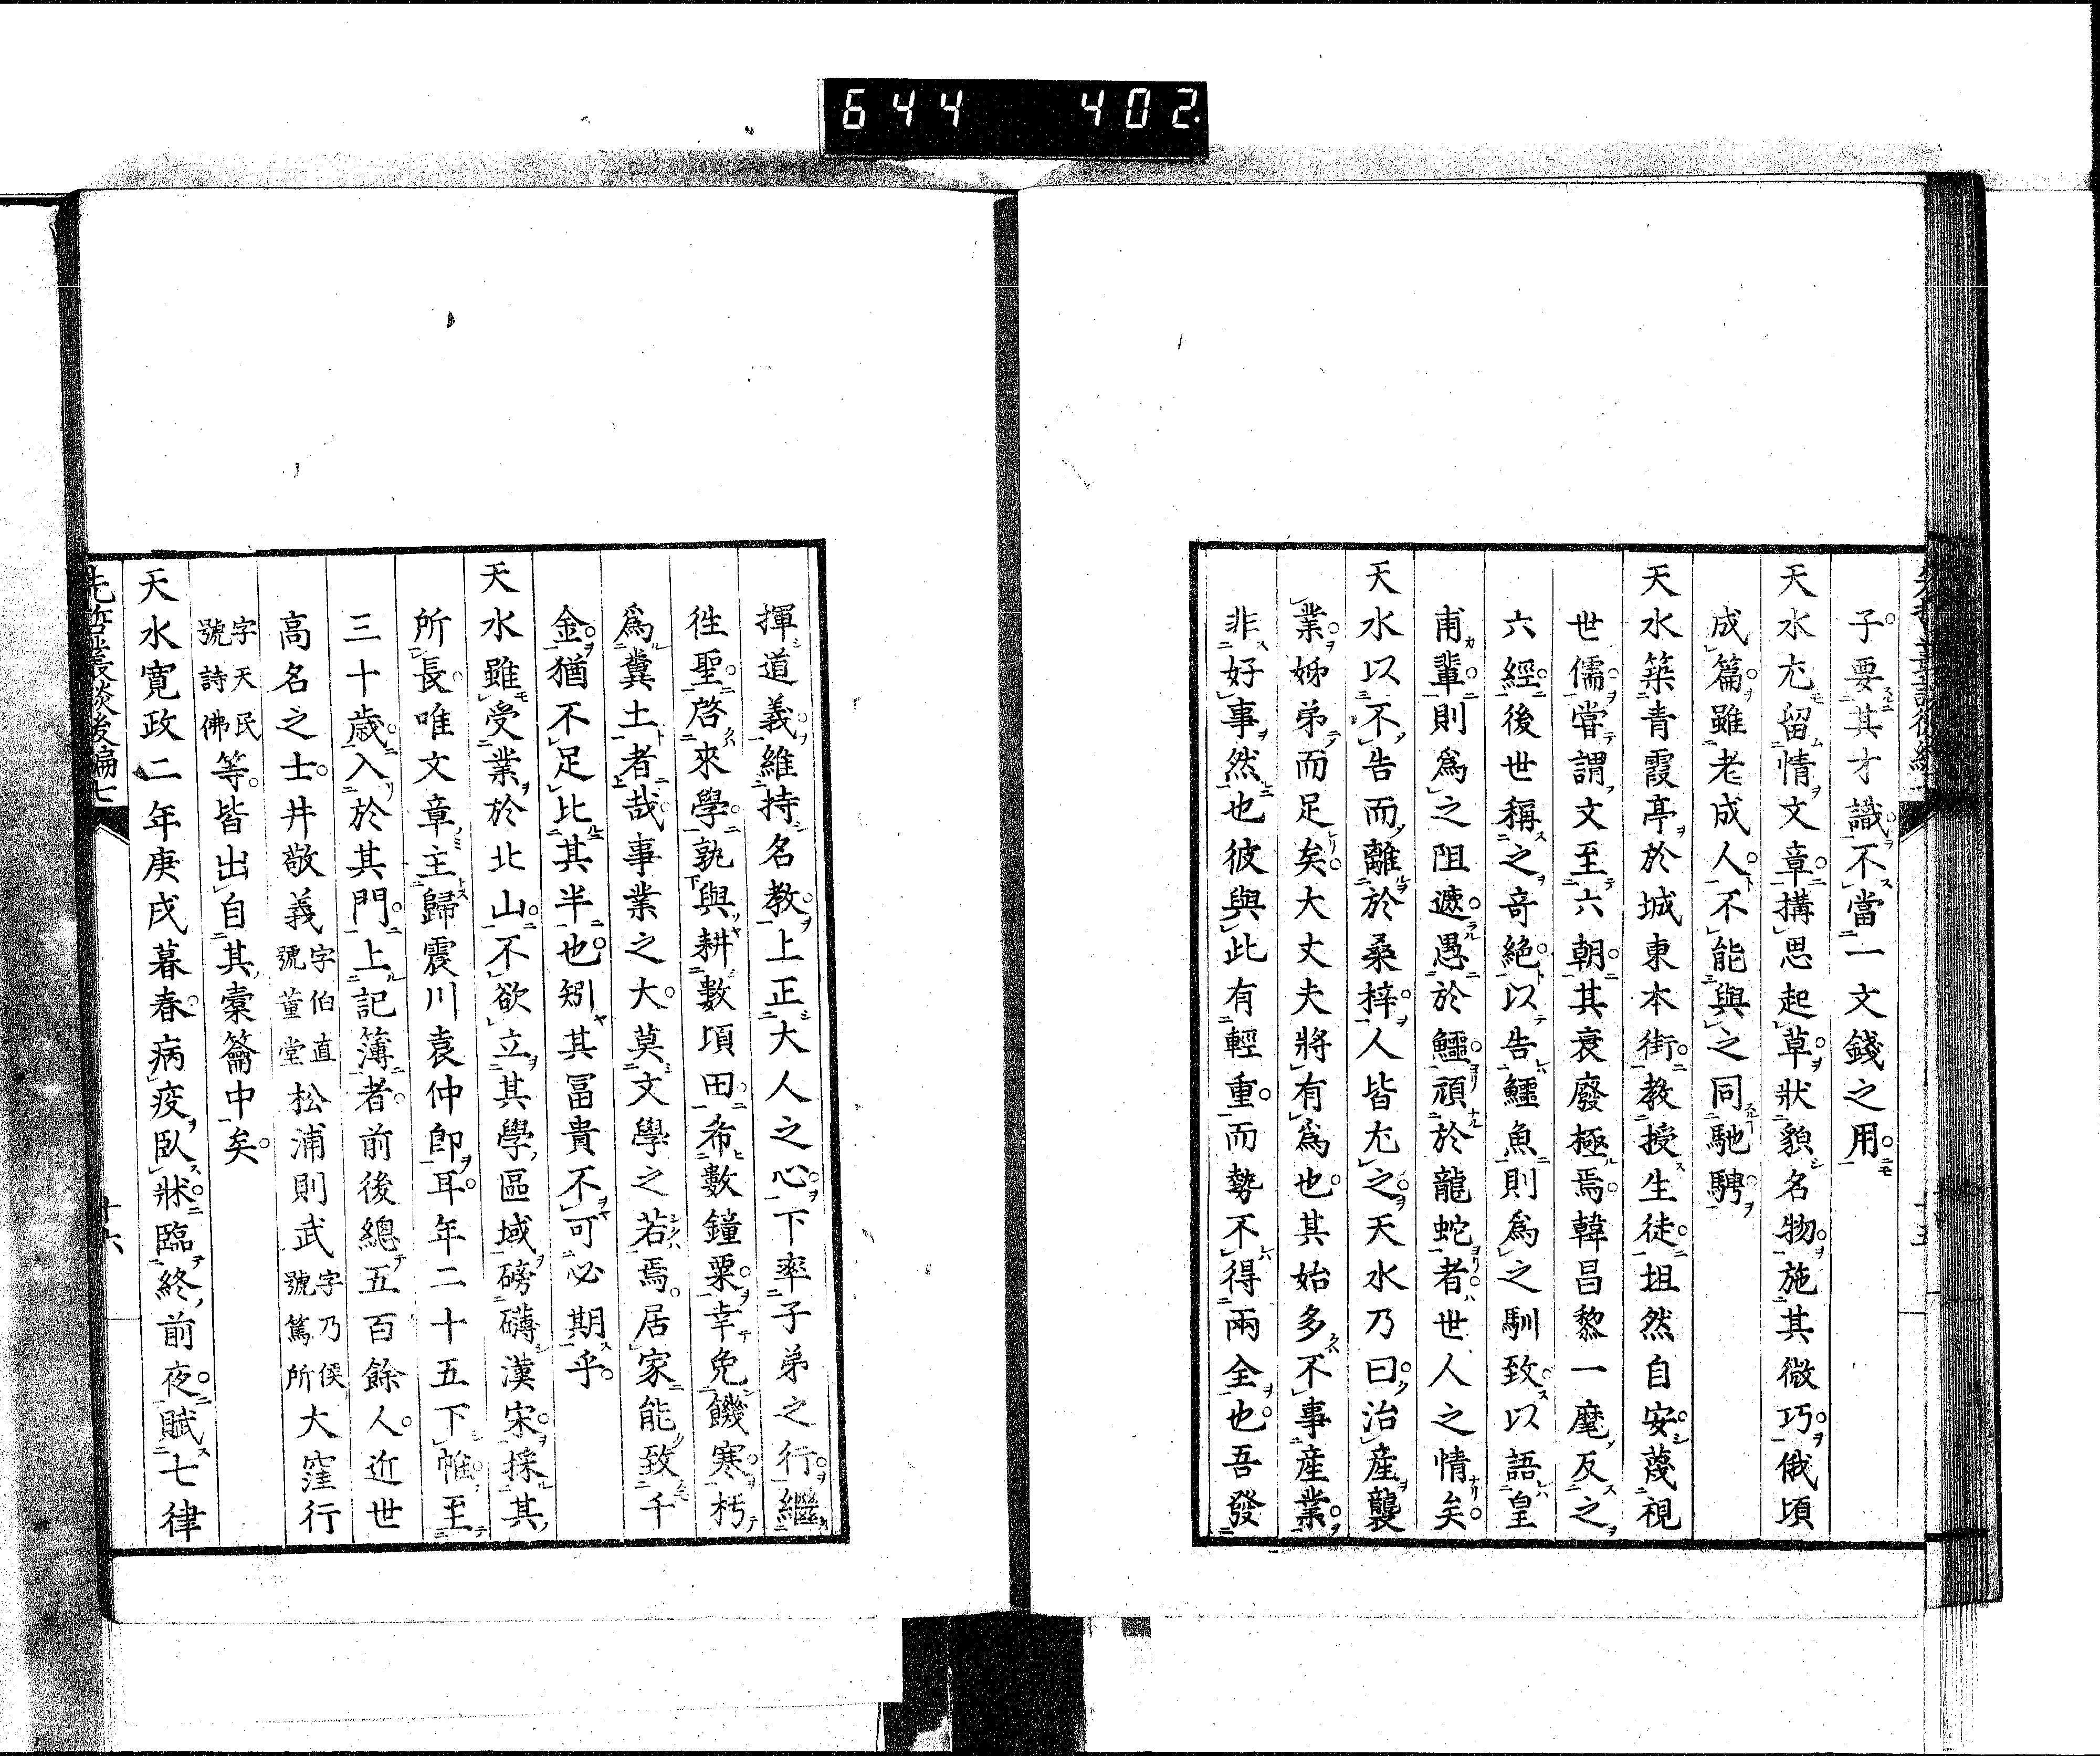 644 402
子要其才識不當一文錢之用
天水尤留情文章搆思起草狀貌名物施其微巧俄頃
成篇雖老成人不能與之同馳騁
天水築青霞亭於城東本街教授生徒坦然自安蔑視
世儒嘗謂文至六朝其衰廢極焉韓昌黎一麾反之
六經後世稱之奇絶以告鱷魚則爲之馴致以語皇
甫輩則爲之阻遮愚於鱷頑於龍蛇者世人之情矣
天水以不告而離於桑梓人皆尤之天水乃曰治產襲
業姊弟而足矣大丈夫將有爲也其始多不事產業
非好事然也彼與此有輕重而勢不得兩全也吾發
揮道義維持名教上正大人之心下率子弟之行繼
徃聖啓來學孰與耕數頃田希數鐘粟幸免饑寒朽
爲糞土者哉事業之大莫文學之若焉居家能致千
金猶不足比其半也矧其冨貴不可必期乎
天水雖受業於北山不欲立其學區域磅礴漢宋採其
所長唯文章主歸震川袁仲郎耳年二十五下帷至
三十歳入於其門上記簿者前後總五百餘人近世
高名之士井敬義字伯直號董堂松浦則武字乃侯號篤所大窪行
字天民號詩佛等皆出自其槖籥中矣
天水寛政二年庚戌暮春病疫臥牀臨終前夜賦七律
先哲叢談後編七 十六